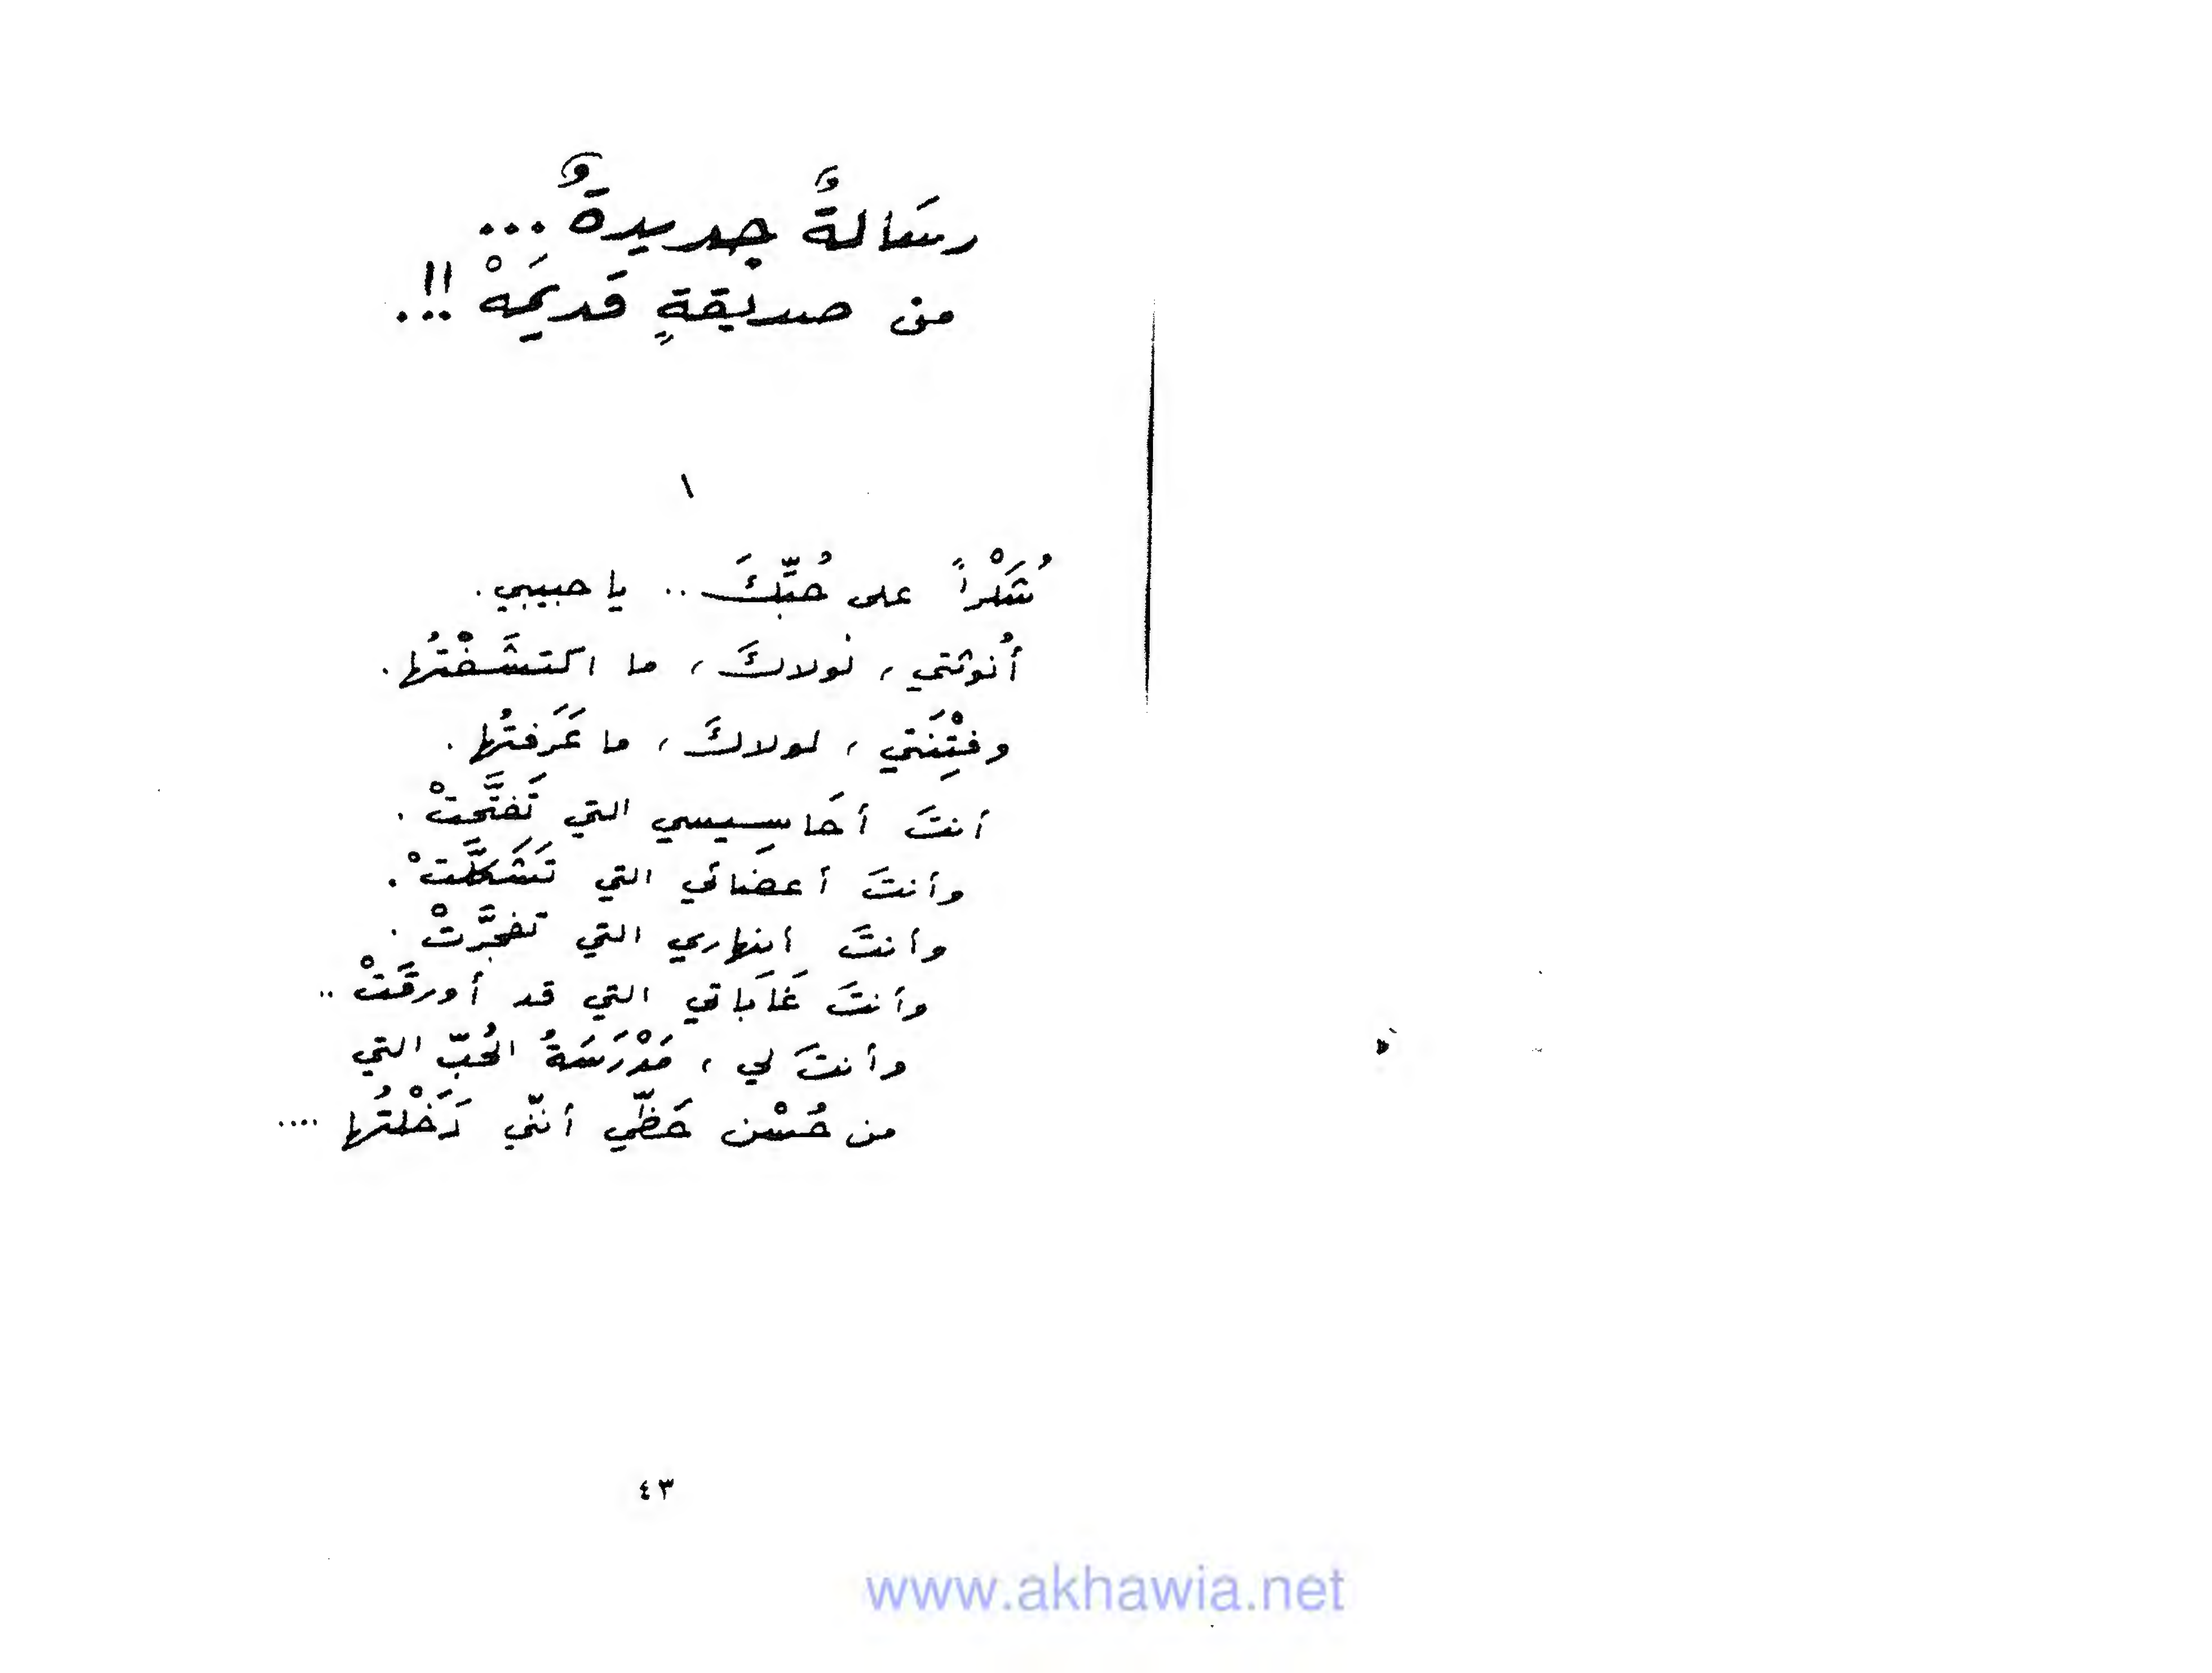 رسَالةٌ جديدةٌ ...
من صديقةٍ قديمَهْ !!..
١
شُكْراً على حُبّكَ .. يا حبيبي.
أُنوثتي ، لولاكَ ، ما اكتشَفْتُها.
وفتْنَتي ، لولاكَ ، ما عَرَفتُها.
أنتَ أحَاسِيسي التي تَفتَّحتْ.
وأنتَ أعضَائي التي تَشَكَّلَتْ.
وأنتَ أنهاري التي تفجَّرتْ.
وأنتَ غَابَاتي التي قد أورقَتْ ..
وأنتَ لي ، مَدْرَسَةُ الحُبّ التي
من حُسْن حَظّي أنّني دَخَلْتُها ....
٤٣
www.akhawia.net